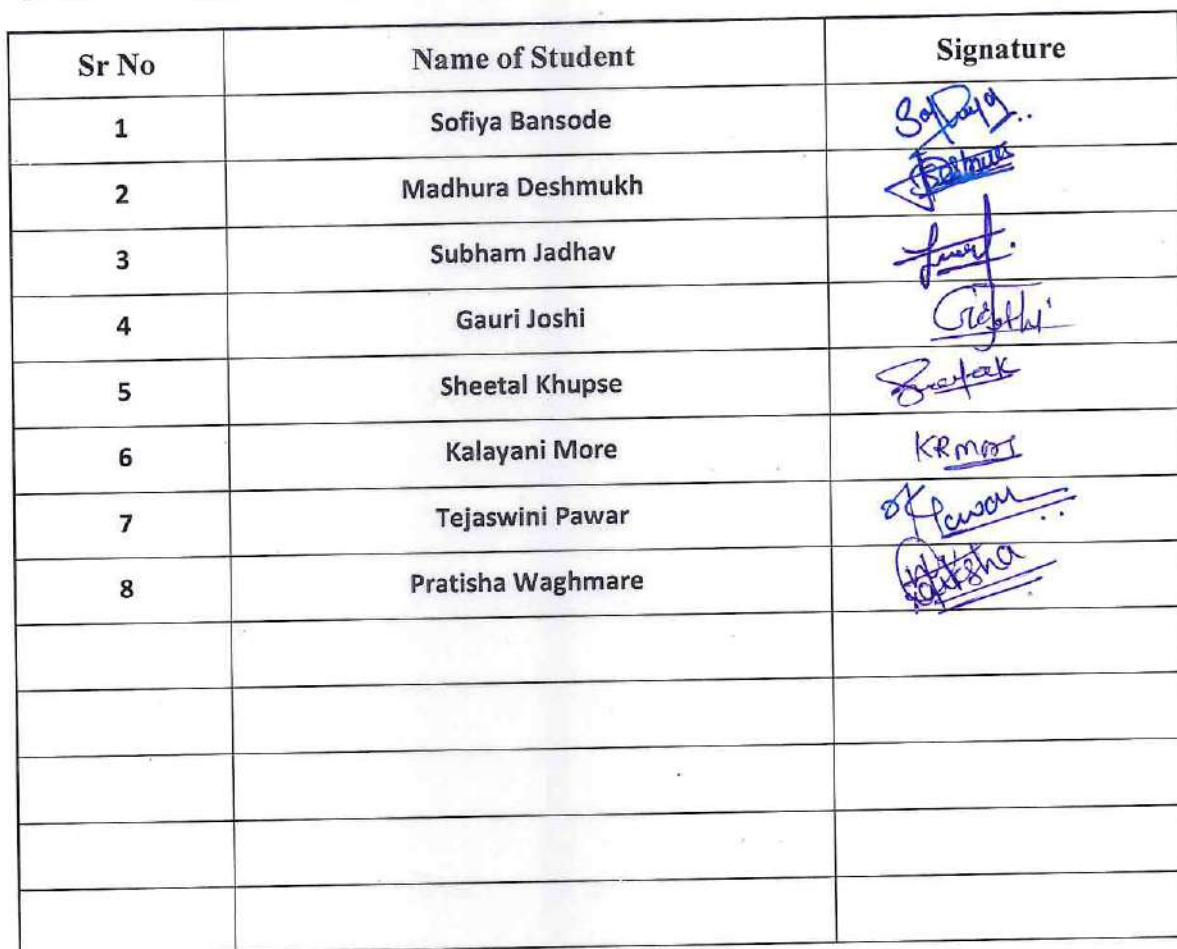 Sr No Name of Student Signature
1 Sofiya Bansode
2 Madhura Deshmukh
3 Subham Jadhav
4 Gauri Joshi
5 Sheetal Khupse
6 Kalayani More
7 Tejaswini Pawar
8 Pratisha Waghmare